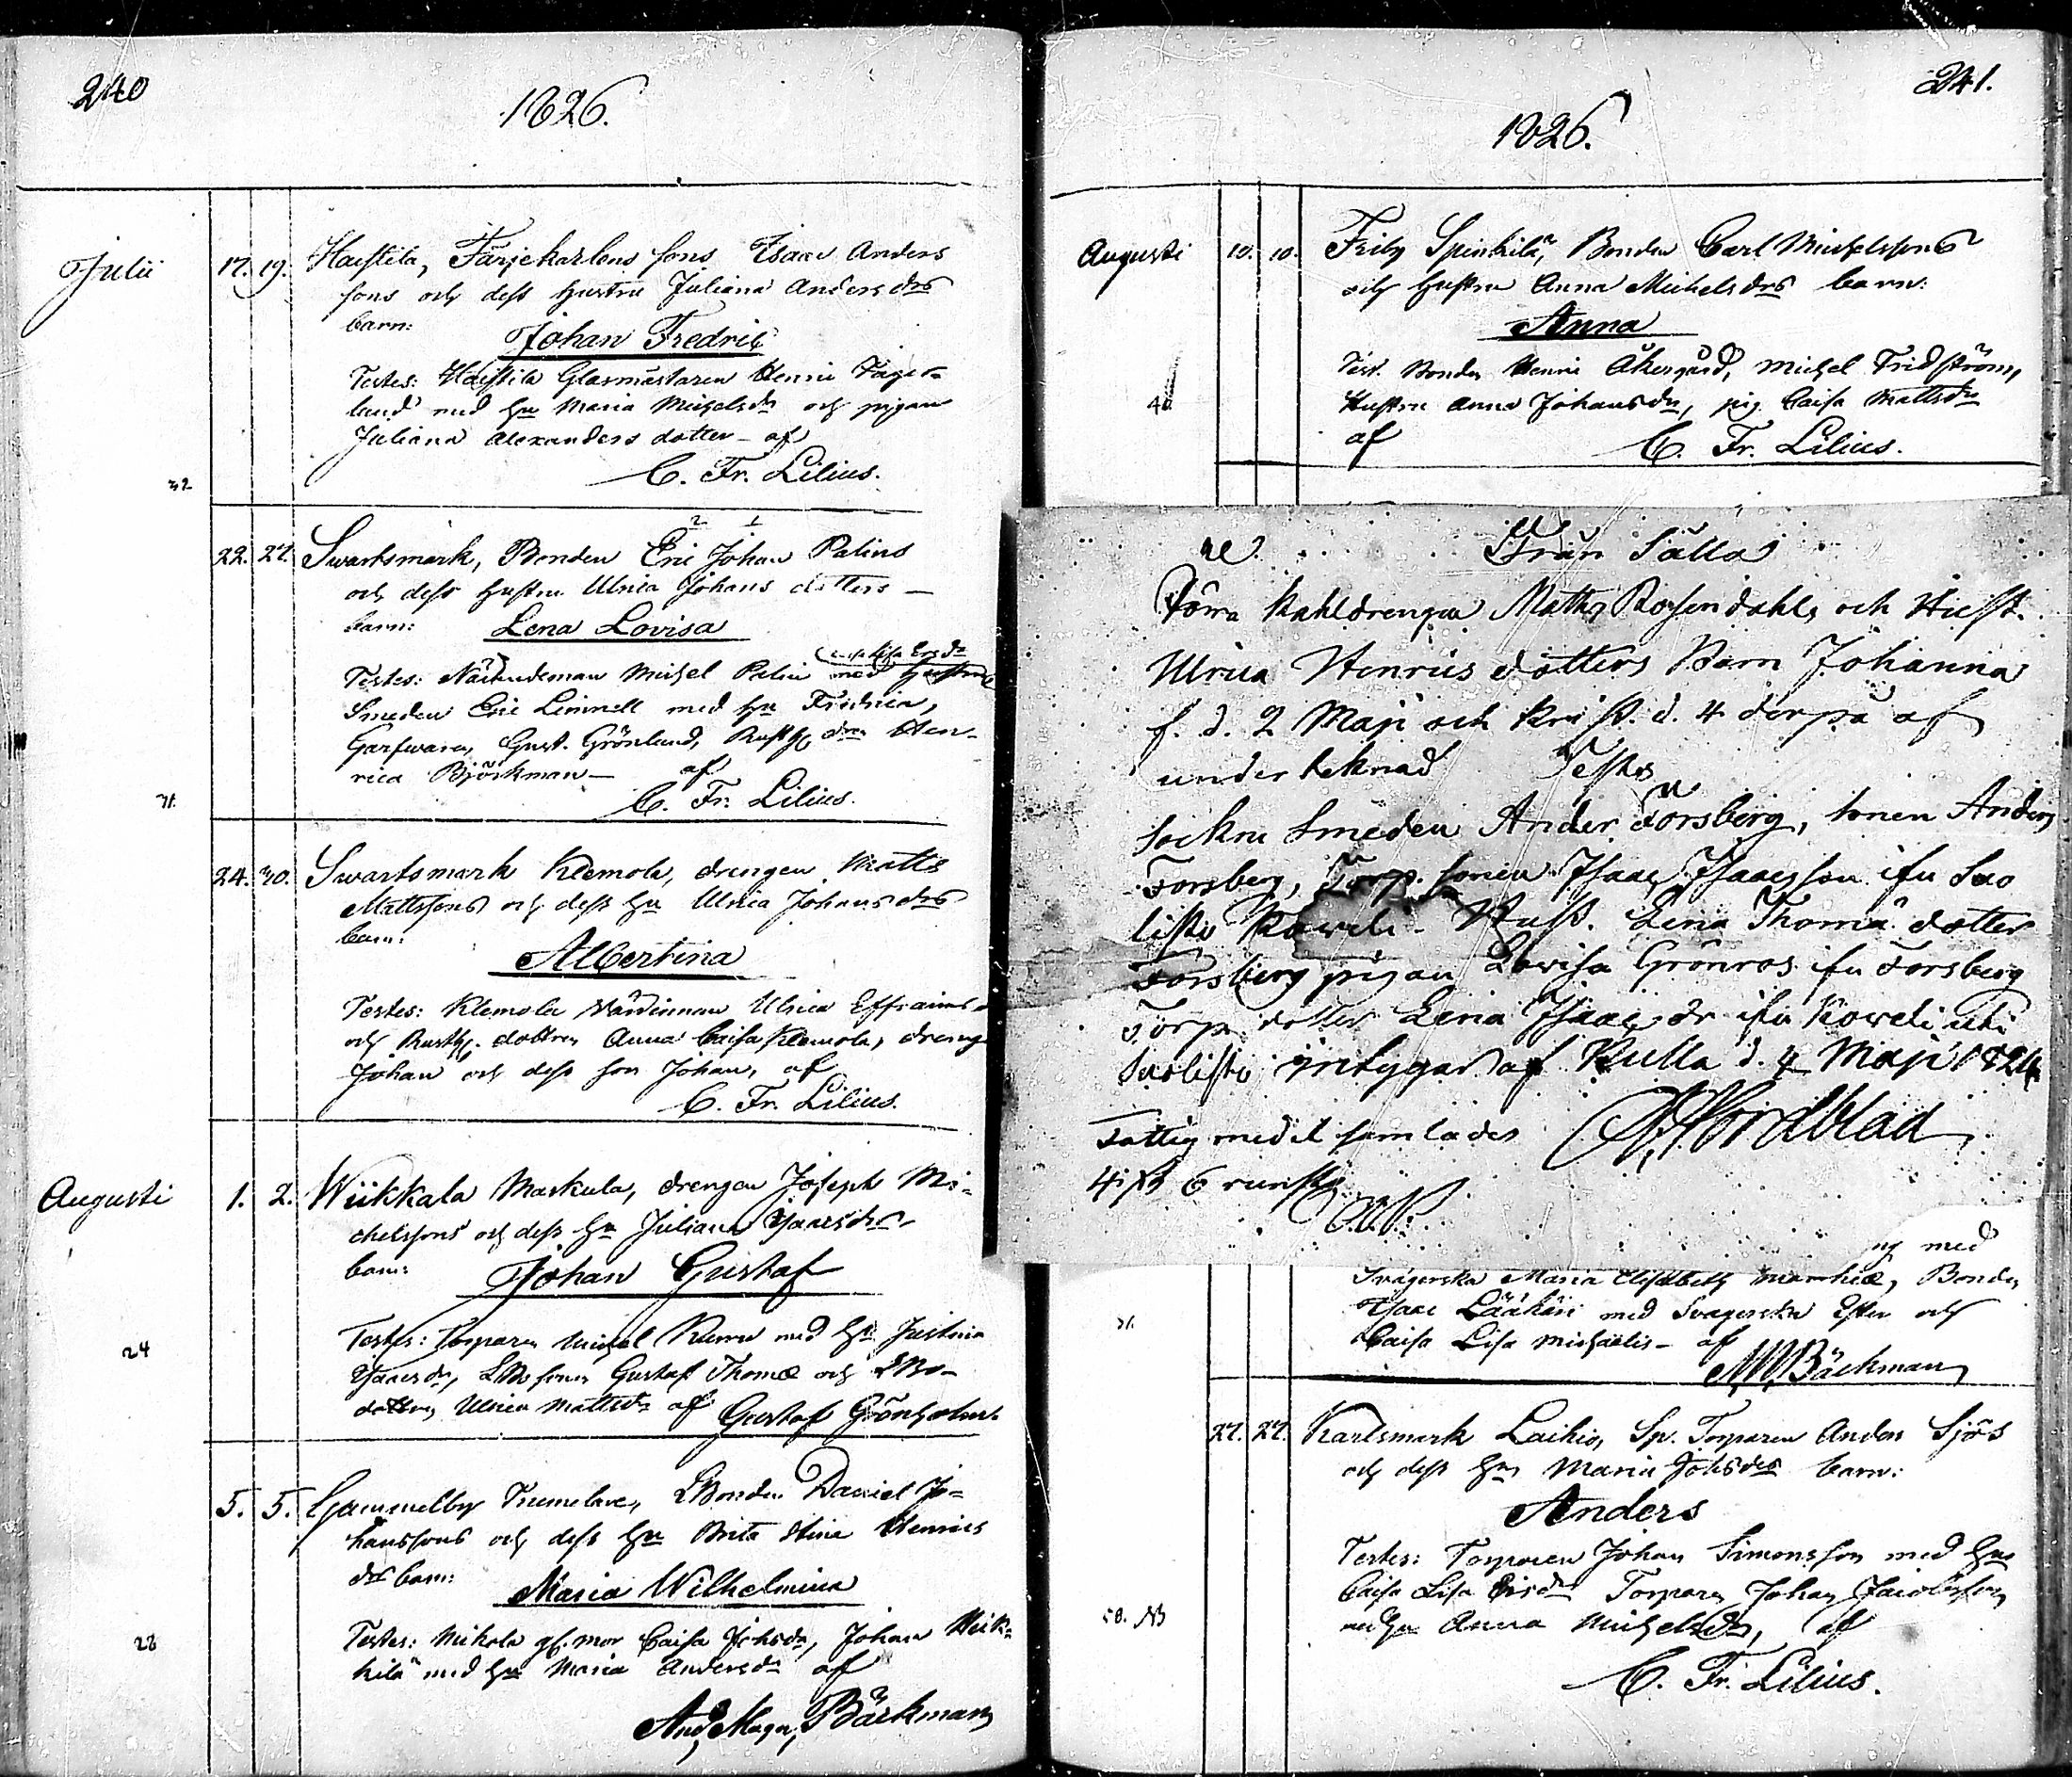 240
1826.
Julii
17. 19. Haistila, Färjekarlens sons Isaac Anders
sons och dess hustru Juliana Andersdrs
barn:
Johan Fredric
Testes: Haistila Glasmästaren Henric Fager-
lund med hu Maria Michelsdr och pigan
Juliana Alexanders dotter - af
C. Fr. Lilius.
32
22. 27. Swartsmark, Bonden Eric Johan Palins
och dess hustru Ulrica Johans dotters
barn: Lena Lovisa
Testes: Nämndeman Michel Palin med hustru
Smeden Eric Linnell med hu Fredrica,
Garfwaren Gust. Grönlund, Rusth. dr Hen-
rica Björkman - af
C. Fr. Lilius.
31.
24. 30. Swartsmark Klemola, drengen Matts
Mattssons och dess hu Ulrica Johansdrs
barn:
Albertina
Testes: Klemola Värdinnan Ulrica Effraims
och Rusth. dottren Anna Caisa Klemola, dreng
Johan och dess son Johan, af
C. Fr. Lilius.
Augusti
1. 2. Wiikkala Markula, drengen Joseph Mi-
chelssons och dess hu Juliana Isaacsdrs
barn: Johan Gustaf
Testes: Torparen Michel med hu Justina
Isaacsdr, sonen Gustaf Thomæ och
dottren Ulrica Mattsdr af Gustaf Grönholm.
24
5. 5. Gammelby Bonden Daniel Jo-
hanssons och dess hu Brita Stina Henrics
dr barn:
Maria Wilhelmina
Testes: Mikola Caisa Johsdr, Johan Heik-
kilä med hu Maria Andersdr af
28
And. Magn. Bäckman
241.
1826.
Augusti 10. 10. Friby Spinkilä, Bonden Carl Michelssons
och hustru Anna Michelsdrs barn:
Anna
Test. Bonden Henric Åkergård, Michel Fridström,
Hustru Anna Johansdr, pig. Caisa Mattsdr
af C. Fr. Lilius.
Från Sälla
Förra Kakldrengen Matts Rosendahls och Hust.
Ulrica Henrics dotters Barn Johanna
f. d. 2 Maji och krist. d. 4 derpå af
underteknad Testes
Sockne Smeden Ander Forsberg, sonen Anders
Forsberg, Torp. sonen Isaac Isaacsson ifrån Suo
listo Koweli - Hust. Lena Thomæ dotter
Forsberg pigan Lovisa Grönros ifrån Forsberg
Torp. dotter Lena Isaacs dr ifrån Koweli uti
Suolisto intygar af Kulla d. 4 Maji 1826
Nordblad
Fattig medel samlades
4 6 runst.
ng med
Svägerska Maria Elisabeth Bonden
Isaac Lääkäri med Svägerska Ester och
Caisa Lisa Michaelis - af
M. Bäckman
27. 27. Karlsmark Laikio, Sp. Torparen Anders Sjös
och dess hus Maria Johsdrs barn:
Anders
Testes: Torparen Johan Simonsson med hus
Caisa Lisa Ericsdr Torparen Johan Jacobsson
med hu Anna Michelsdr, af
58. NB
C. Fr. Lilius.